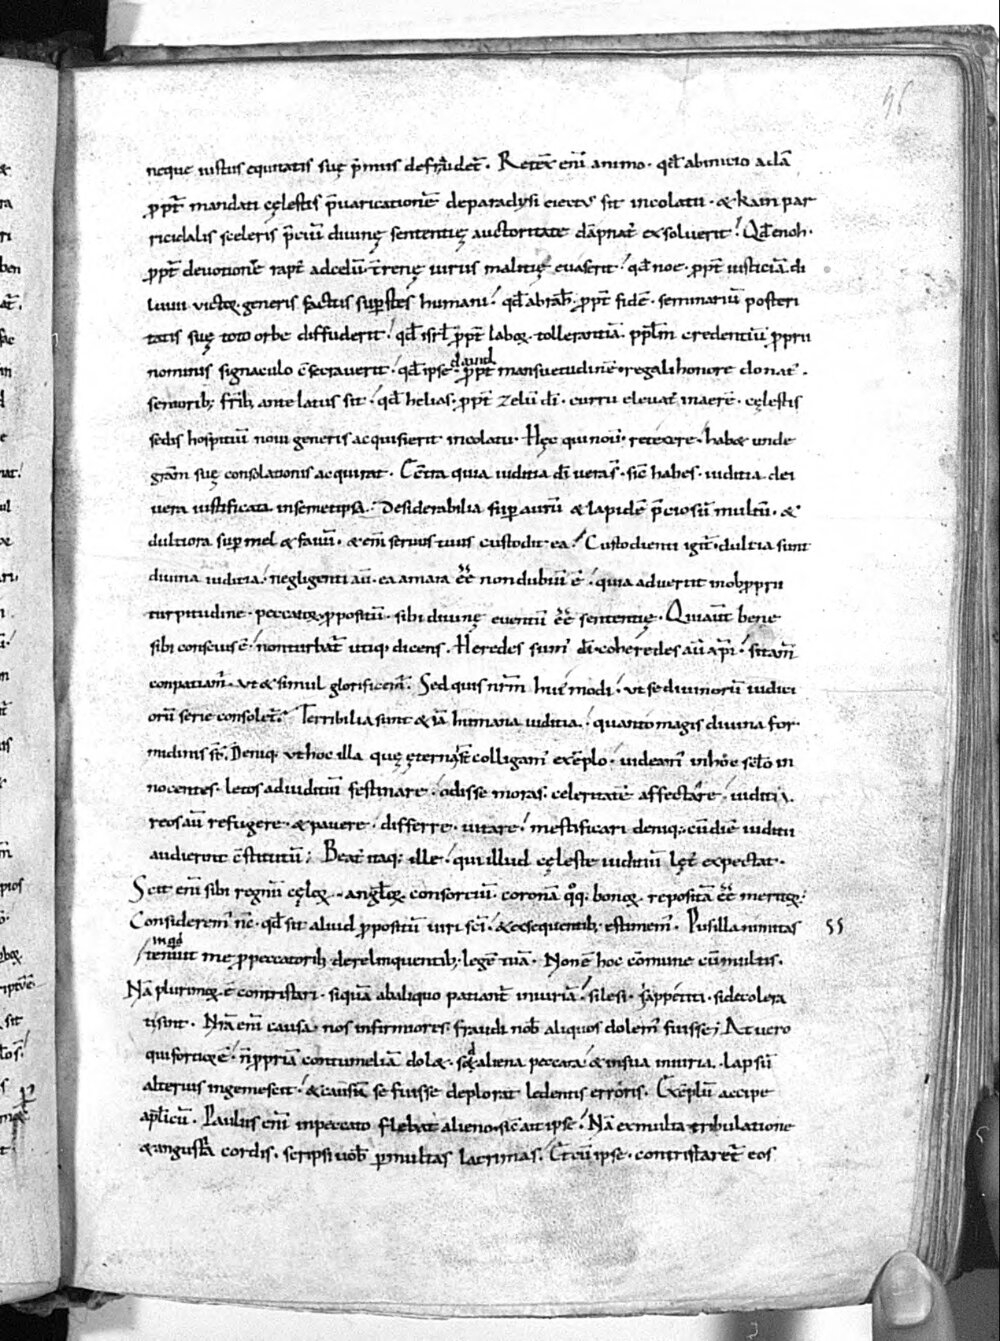 56
neque iustus equitatis suę p̄mius defrudet̄. Retex̄ eni animo. qđ abinitio adā
ꝓpt̄ mandati cęlestis p̄uaricationē deparadysi eiectꝰ sit incolatu. & kain par
ricidalis sceleris p̄ciū diuinę sententię auctoritate dāpnatꝰ exsoluerit! Qđ enoh.
ꝓpt̄ deuotionē raptꝰ adcelū t̄renę uirus malitię euaserit! qđ noe. ꝓpt̄ iusticiā. di
luuii uictor generis factus suꝑstes humani! qđ abrah̄. ꝓpt̄ fidē. seminariū posteri
tatis suę toto orbe diffuderit! qđ isrl̄ ꝓpt̄ laboꝝ. tollerantiā. pplm̄ credentiū ꝓprii
nominis signaculo c̄secrauerit! qđ ipse dauid ꝓpt̄ mansuetudinē. regali honore donatꝰ.
seniorib; frib; antelatus sit! qđ helias. ꝓpt̄ zelū dī. curru eleuatꝰ in aerē. cęlestis
sedis hospitiū noui generis acquisierit incolatu. Hęc qui nouit. retexere! hab& unde
gratiā suę consolationis acquirat. Cet̄a quia iuditia dī ueras! sic̄ habes. iuditia dei
uera iustificata insemetipsa. Desiderabilia suꝑ aurū & lapidē p̄ciosū multū. &
dultiora suꝑ mel & fauū. & eni seruus tuus custodit ea! Custodienti igit̄. dultia sunt
diuina iuditia! negligenti au. ea amara ēē non dubiū ē! quia aduertit inobꝓprii
turpitudine. peccatoꝝ ꝓpositū. sibi diuinę euentū ēē sententię. Quiaut̄ bene
sibi conscius ē! nonturbat̄ utiq; dicens. Heredes sumꝰ dī. coheredes aū xp̄i! sitam̄
conpatiamꝰ. ut & simul glorificemꝰ. Sed quis nrm̄ huiꝰmodi! ut se diuinorū iudici
orū serie consolet̄. Terribilia sunt & iā humana iuditia! quantomagis diuina for
midinis st̄. Deniq; ut hoc illa quę ęterna st̄ colliganꝰ exēplo! uideamꝰ inhoc sclo in
nocentes. letos adiuditiū festinare. odisse moras. celeritatē affectare! iuditia.
reos aū refugere. & pauere. differre. uitare! mestificari deniq; cū diē iuditii
audierint c̄stitutū; Beatꝰ itaq; ille! qui illud cęleste iuditiū lętꝰ expectat.
Scit eni sibi regnū cęloꝝ. angloꝝ. consortiū. coronā qq; bonoꝝ. repositā ēē meritoꝝ.
Consideremꝰ nc̄. qđ sit aliud ꝓpositū uiri scī. & exsequentib; estimemꝰ. Pusillanimitas 55
inqd
tenuit me ꝓ peccatorib; derelinquentib; legē tuā. Non ē hoc cōmune cū multis.
Nā plurimoꝝ ē contristari. siquā abaliquo patiant̄ iniuriā! silesi. sappetiti. sidecolera
tisint. Nrā eni causa. nos infirmiores. fraudi nob̄ aliquos dolemꝰ fuisse; At uero
qui fortioꝝ ē! n̄ ꝓpriā contumeliā dol&. sed aliena peccata! & insua iniuria. lapsū
alterius ingemescit! & causā se fuisse deplorat ledentis erroris. Exēplū accipe
aplicū. Paulus eni inpeccato flebat alieno. sic̄ ait ipse! Nā exmulta tribulatione
& angustia cordis. scripsi uob̄ ꝑmultas lacrimas. Et cū ipse. contristaret̄ eos